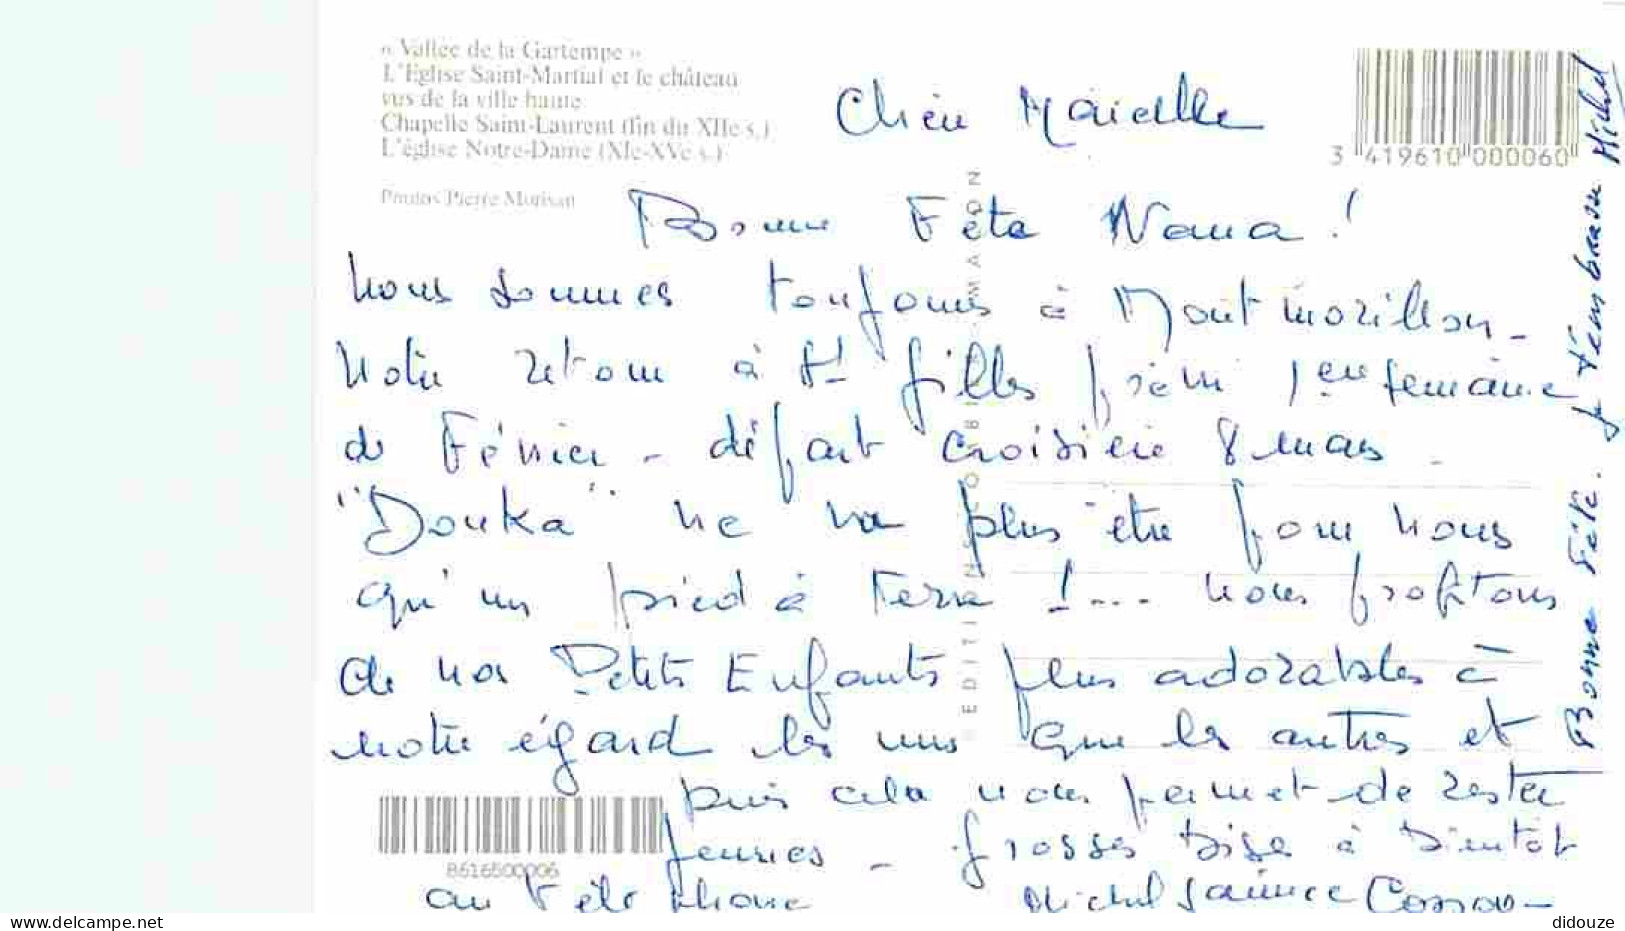 « Vallée de la Gartempe »
L'Eglise Saint-Martial et le château
vus de la ville haute
Chapelle Saint-Laurent (fin du XIIe s.)
L'église Notre-Dame (XIe-XVe s.)
Photos Pierre Morisan
3 419610 000060
EDITIONS COMBIER MACON
Bonne Fête Nana !
Nous sommes toujours à Montmorillon -
Notre retour à St Gilles 1ère semaine
de Février - départ croisière 8 mars -
"Douka" ne va plus être pour nous
qu'un pied à terre !... nous profitons
de nos Petits Enfants plus adorables à
notre égard les uns que les autres et
puis cela nous permet de rester
jeunes - grosses bises à bientôt
au téléphone Michel
8616500006
Bonne Fête. Je t'embrasse Michel
www.delcampe.net
didouze